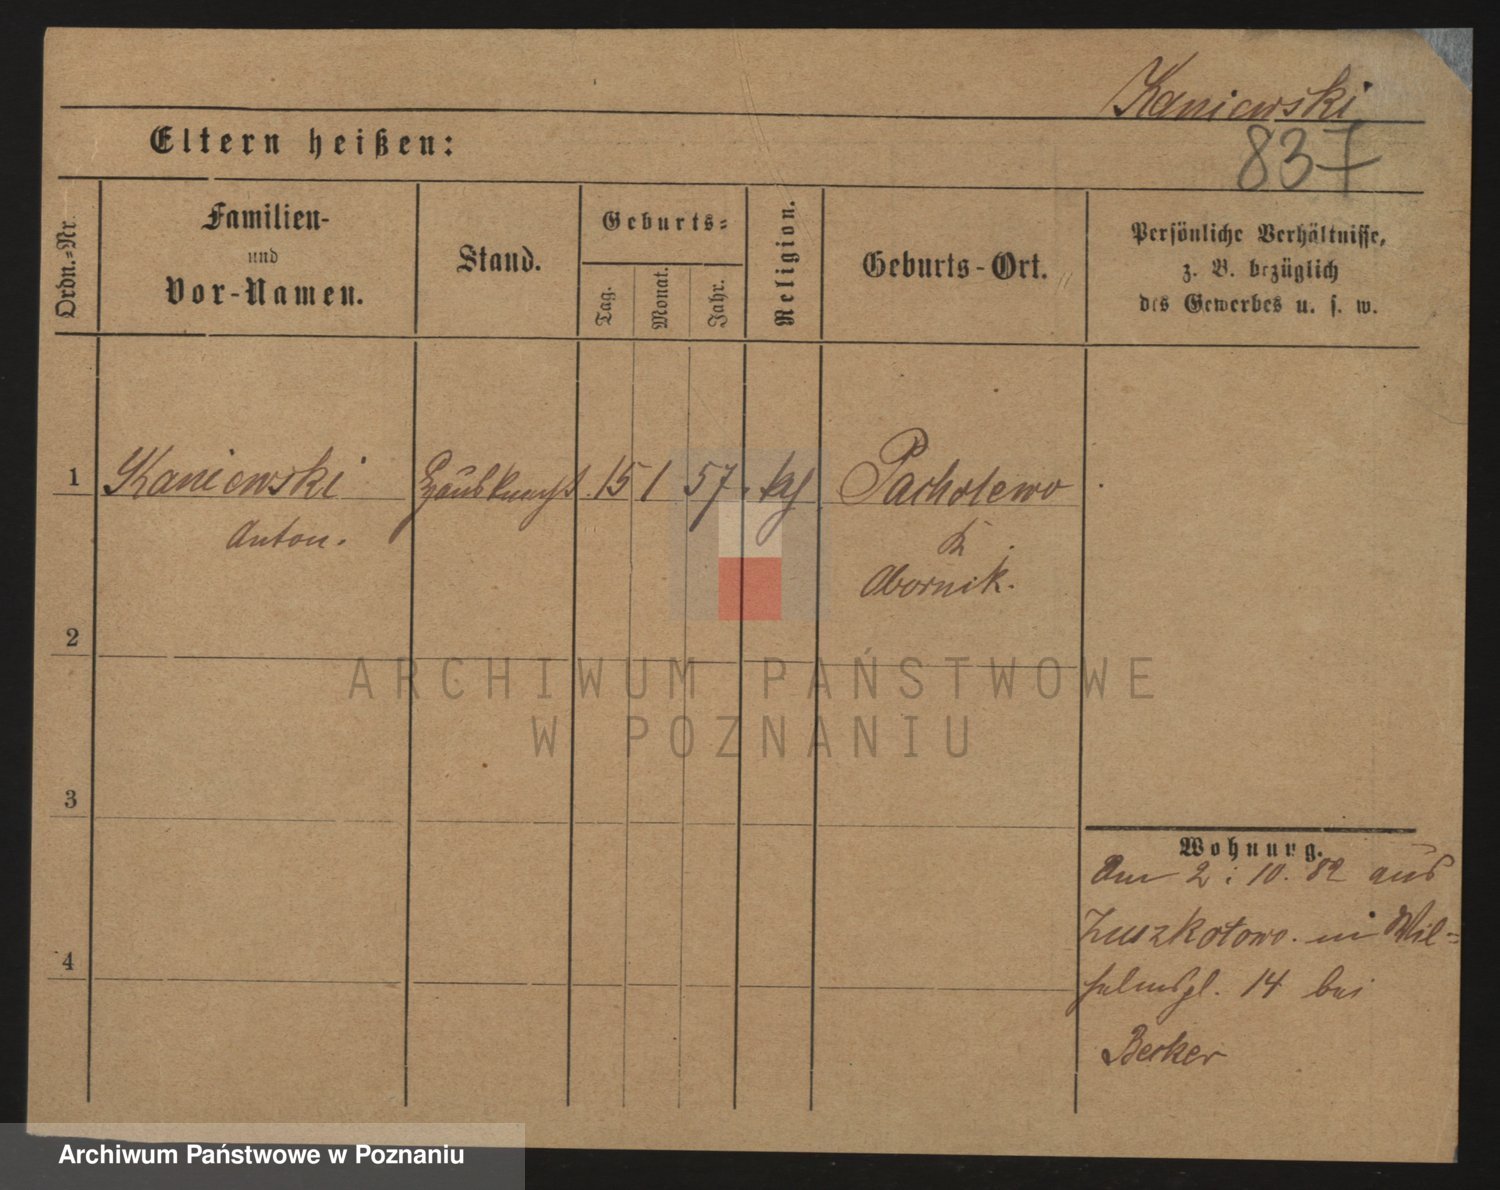 Kaniewski
837
Eltern heißen:
Ordn.-Nr.
Familien-
und
Vor-Namen.
Stand.
Geburts-
Tag.
Monat.
Jahr.
Religion.
Geburts-Ort.
Persönliche Verhältnisse,
z. B. bezüglich
des Gewerbes u. s. w.
1 Kaniewski 15 1 57. kath Pacholewo
Anton.
Obornik.
2
ARCHIWUM PAŃSTWOWE
W POZNANIU
3
Wohnung.
Am 2 : 10. 82 aus
Zuszkotowo. in Wil=
helmspl. 14 bei
4
Becker
Archiwum Państwowe w Poznaniu